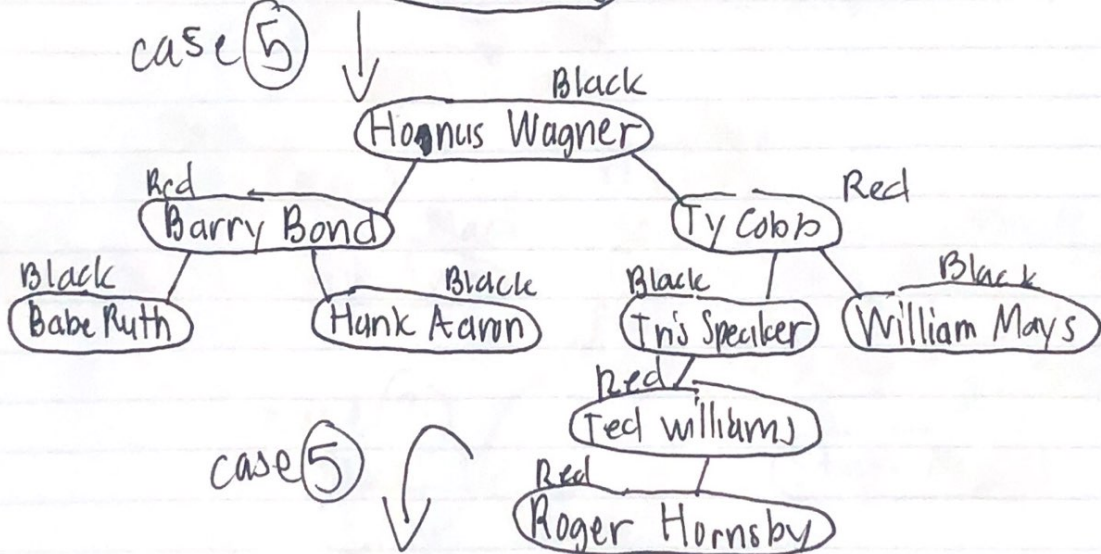 case 5
Black
Honus Wagner
Red
Barry Bond
Red
Ty Cobb
Black
Babe Ruth
Black
Hank Aaron
Black
Tris Speaker
Black
William Mays
Red
Ted williams
case 5
Red
Roger Hornsby